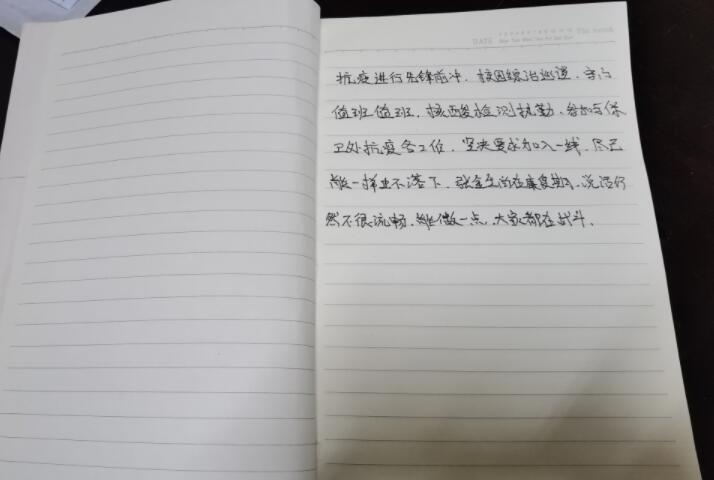 DATE
抗疫进行先锋前冲，校园综治巡逻，室内
值班值班，核酸检测执勤，参加与保
卫处抗疫各工作，坚决要求加入一线，尽己
能一样也不落下，张金 尚在康复期，说话仍
然不很流畅，能做一点，大家都在战斗，